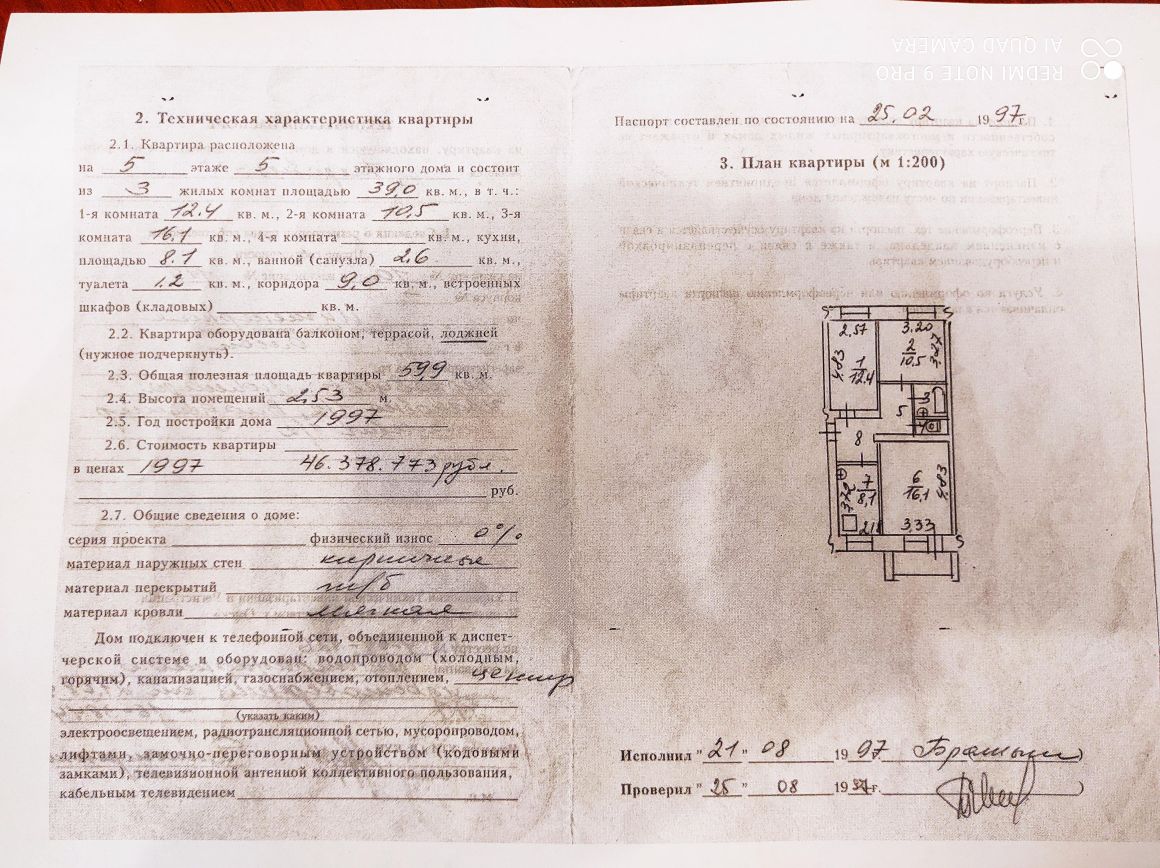 2. Техническая характеристика квартиры
2.1. Квартира расположена
на 5 этаже 5 этажного дома и состоит
из 3 жилых комнат площадью 39,0 кв. м., в т. ч.:
1-я комната 12.4 кв. м., 2-я комната 10.5 кв. м., 3-я
комната 16.1 кв. м., 4-я комната кв. м., кухни,
площадью 8.1 кв. м., ванной (санузла) 2.6 кв. м.,
туалета 1.2 кв. м., коридора 9,0 кв. м., встроенных
шкафов (кладовых) кв. м.
2.2. Квартира оборудована балконом, террасой, лоджией
(нужное подчеркнуть).
2.3. Общая полезная площадь квартиры 59,9 кв. м.
2.4. Высота помещений 2,53 м.
2.5. Год постройки дома 1997
2.6. Стоимость квартиры
в ценах 1997 46.378.773 рубл.
руб.
2.7. Общие сведения о доме:
серия проекта физический износ 0%
материал наружных стен кирпичные
материал перекрытий ж/б
материал кровли мягкая
Дом подключен к телефонной сети, объединенной к диспет-
черской системе и оборудован: водопроводом (холодным,
горячим), канализацией, газоснабжением, отоплением, центр
(указать каким)
электроосвещением, радиотрансляционной сетью, мусоропроводом,
лифтами, замочно-переговорным устройством (кодовыми
замками), телевизионной антенной коллективного пользования,
кабельным телевидением
REDMI NOTE 9 PRO
AI QUAD CAMERA
Паспорт составлен по состоянию на 25.02 1997 г.
3. План квартиры (м 1:200)
2,57 3.20
1 2
12.4 10.5
4.83 3.27
3
5 4
8
7 6
8,1 16,1
3.72 4.83
2,18 3,33
Исполнил "21" 08 1997
Проверил "25" 08 1997 г.